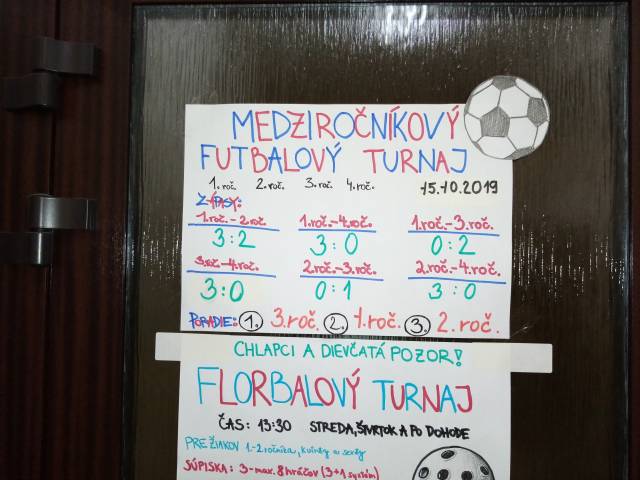 MEDZIROČNÍKOVÝ
FUTBALOVÝ TURNAJ
1. roč. 2. roč. 3. roč. 4. roč. 15.10.2019
ZÁPASY:
1.roč.-2.roč. 1.roč.-4.roč. 1.roč.-3.roč.
3:2 3:0 0:2
3.roč.-4.roč. 2.roč.-3.roč. 2.roč.-4.roč.
3:0 0:1 3:0
PORADIE: 1. 3.roč. 2. 1.roč. 3. 2.roč.
CHLAPCI A DIEVČATÁ POZOR!
FLORBALOVÝ TURNAJ
ČAS: 13:30 STREDA, ŠTVRTOK A PO DOHODE
PRE ŽIAKOV 1.-2 ročníka, kvinty a sexty
SÚPISKA: 3-max. 8 hráčov (3+1 systém)